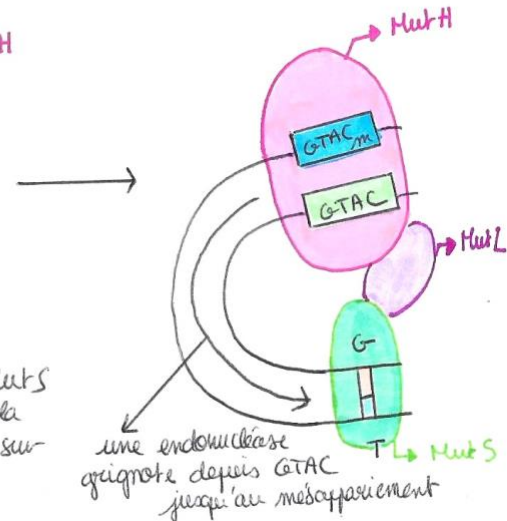 H
MutH
GTACm
GTAC
MutL
G
T
MutS
utS
la
sur-
une endonucléase
grignote depuis GTAC
jusqu'au mésappariement